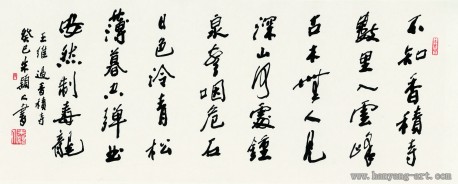 不知香積寺
數里入雲峰
古木無人見
深山何處鐘
泉聲咽危石
日色冷青松
薄暮空彈曲
安然制毒龍
王維過香積寺
癸巳朱書
www.hanyang-art.com